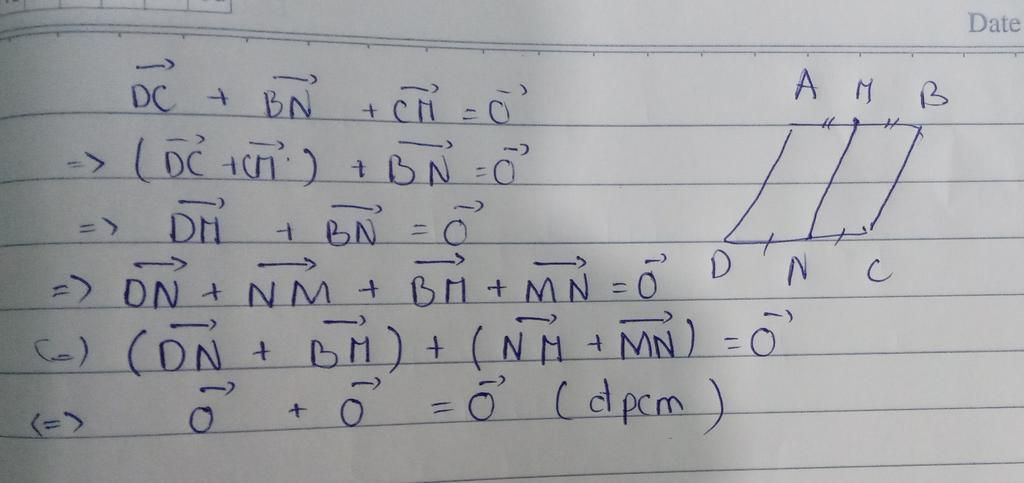 Date
DC⃗ + BN⃗ + CM⃗ = 0⃗
=> (DC⃗ + CM⃗) + BN⃗ = 0⃗
=> DM⃗ + BN⃗ = 0⃗
=> DN⃗ + NM⃗ + BM⃗ + MN⃗ = 0⃗
(=) (DN⃗ + BM⃗) + (NM⃗ + MN⃗) = 0⃗
(=> 0⃗ + 0⃗ = 0⃗ (dpcm)
A M B
D N C